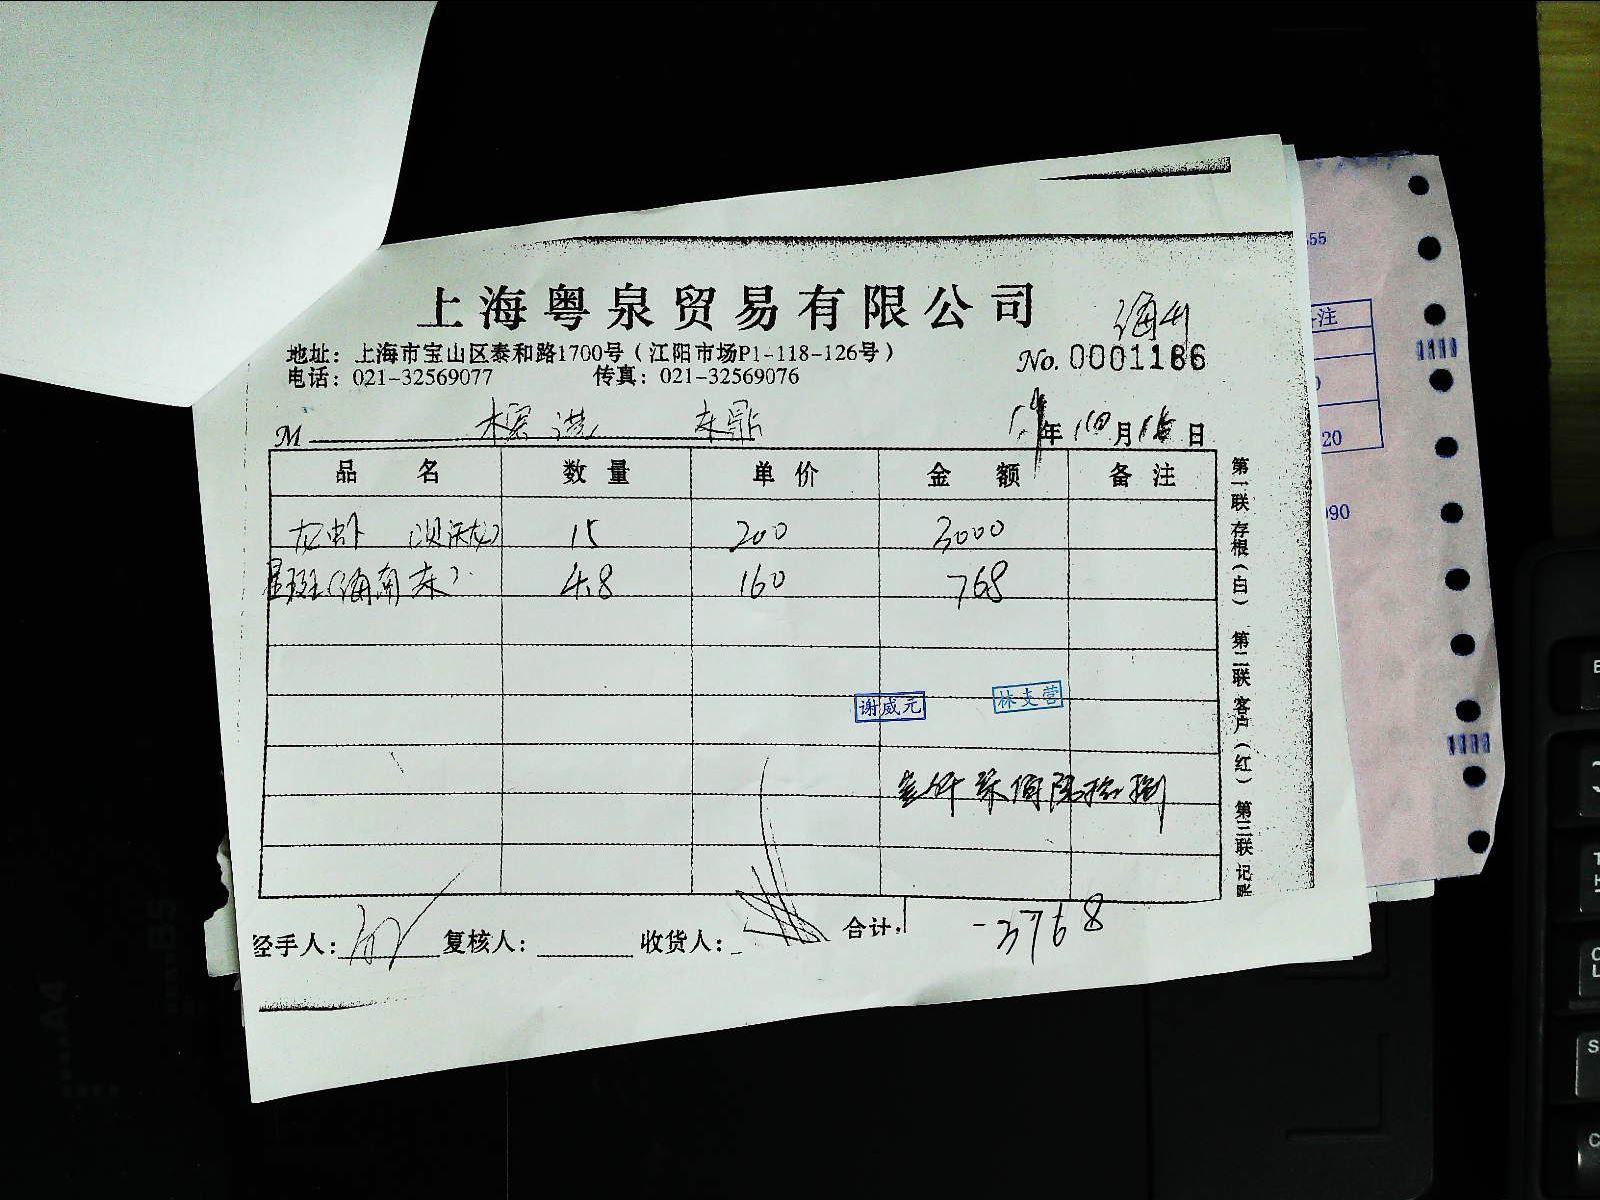 上海粤泉贸易有限公司
地址：上海市宝山区泰和路1700号（江阳市场P1-118-126号）
No.0001186
电话：021-32569077 传真：021-32569076
M 年10月 日
品 名 数 量 单 价 金 额 备 注
龙虾 15 200 3000
星斑（海南 4.8 160 768
谢威元 林支营
经手人： 复核人： 收货人： 合计： -3768
第一联 存根（白） 第二联 客户（红） 第三联 记账
55
注
20
090